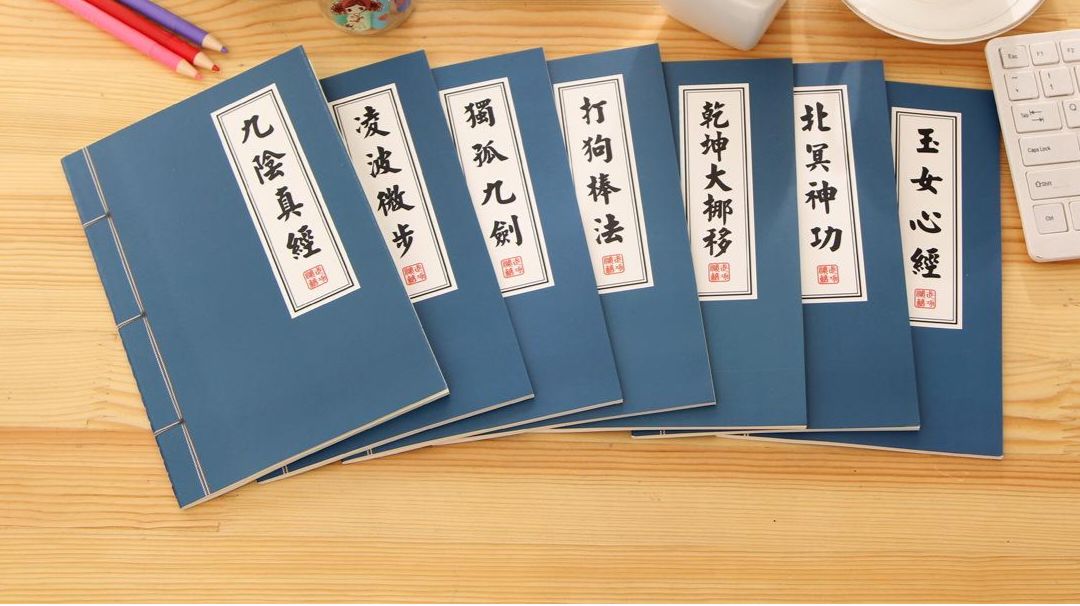 九陰真經
凌波微步
獨孤九劍
打狗棒法
乾坤大挪移
北冥神功
玉女心經
Esc
F1
F2
~
!
1
Tab
Q
Caps Lock
Shift
Ctrl